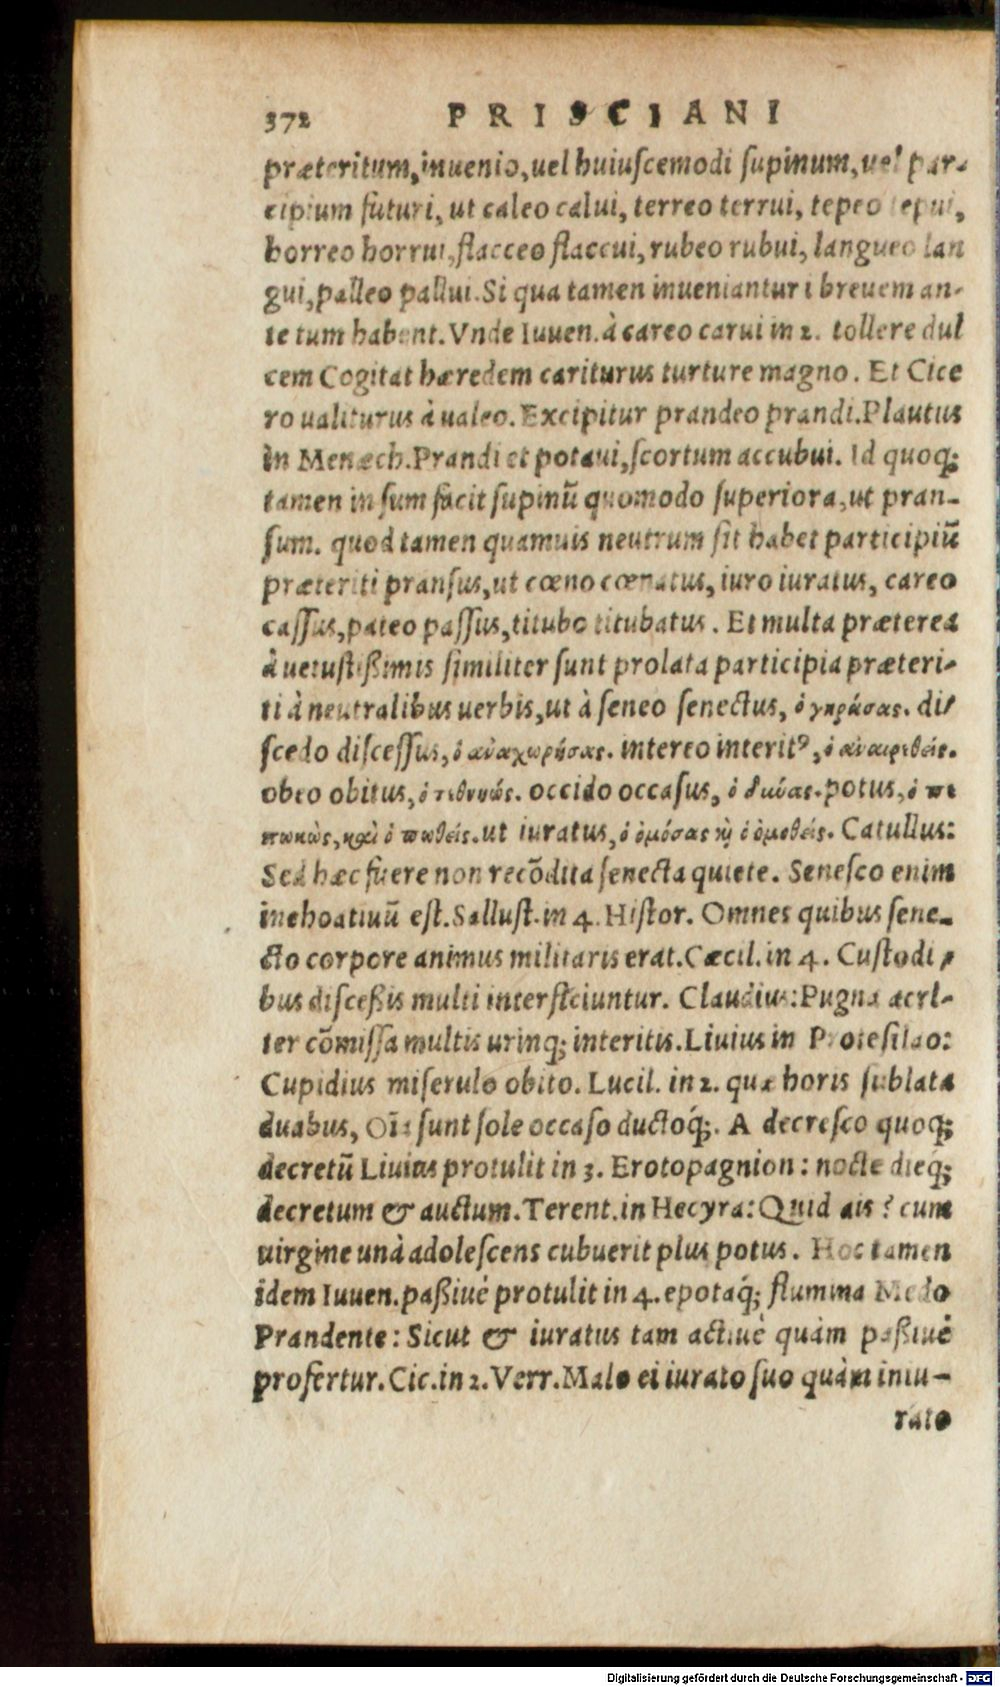 372 PRISCIANI
præteritum, inuenio, uel huiuſcemodi ſupinum, uel par-
cipium futuri, ut caleo calui, terreo terrui, tepeo tepui,
horreo horrui, flacceo flaccui, rubeo rubui, langueo lan
gui, palleo pallui. Si qua tamen inueniantur i breuem an-
te tum habent. Vnde Iuuen. à careo carui in 2. tollere dul
cem Cogitat hæredem cariturus turture magno. Et Cice
ro ualiturus à ualeo. Excipitur prandeo prandi. Plautus
in Menæch. Prandi et potaui, ſcortum accubui. Id quoq;
tamen in ſum facit ſupinũ quomodo ſuperiora, ut pran-
ſum. quod tamen quamuis neutrum ſit habet participiũ
præteriti pranſus, ut cœno cœnatus, iuro iuratus, careo
caſſus, pateo paſſus, titubo titubatus. Et multa præterea
à uetuſtißimis ſimiliter ſunt prolata participia præteri-
ti à neutralibus uerbis, ut à ſeneo ſenectus, ὁ γηράσας. diſ
ſcedo diſceſſus, ὁ ἀναχωρήσας. intereo interitꝰ, ὁ ἀναιρεθείς.
obeo obitus, ὁ τεθνηώς. occido occaſus, ὁ δύνας. potus, ὁ πε
πωκὼς, καὶ ὁ ποθείς. ut iuratus, ὁ ὀμόσας ϗ ὁ ὀμοθείς. Catullus:
Sed hæc fuere non recõdita ſenecta quiete. Seneſco enim
inchoatiuũ eſt. Salluſt. in 4. Hiſtor. Omnes quibus ſene-
cto corpore animus militaris erat. Cæcil. in 4. Cuſtodi-
bus diſceßis multi interficiuntur. Claudius: Pugna acri-
ter cõmiſſa multis utrinq; interitis. Liuius in Proteſilao:
Cupidius miſerulo obito. Lucil. in 2. quæ horis ſublata
duabus, Oĩa ſunt ſole occaſo ductoq́;. A decreſco quoq;
decretũ Liuius protulit in 3. Erotopagnion: nocte dieq́;
decretum & auctum. Terent. in Hecyra: Quid ais? cum
uirgine unà adoleſcens cubuerit plus potus. Hoc tamen
idem Iuuen. paßiuè protulit in 4. epotaq́; flumina Medo
Prandente: Sicut & iuratus tam actiuè quàm paßiuè
profertur. Cic. in 2. Verr. Malo ei iurato ſuo quàm iniu-
rato
Digitalisierung gefördert durch die Deutsche Forschungsgemeinschaft - DFG